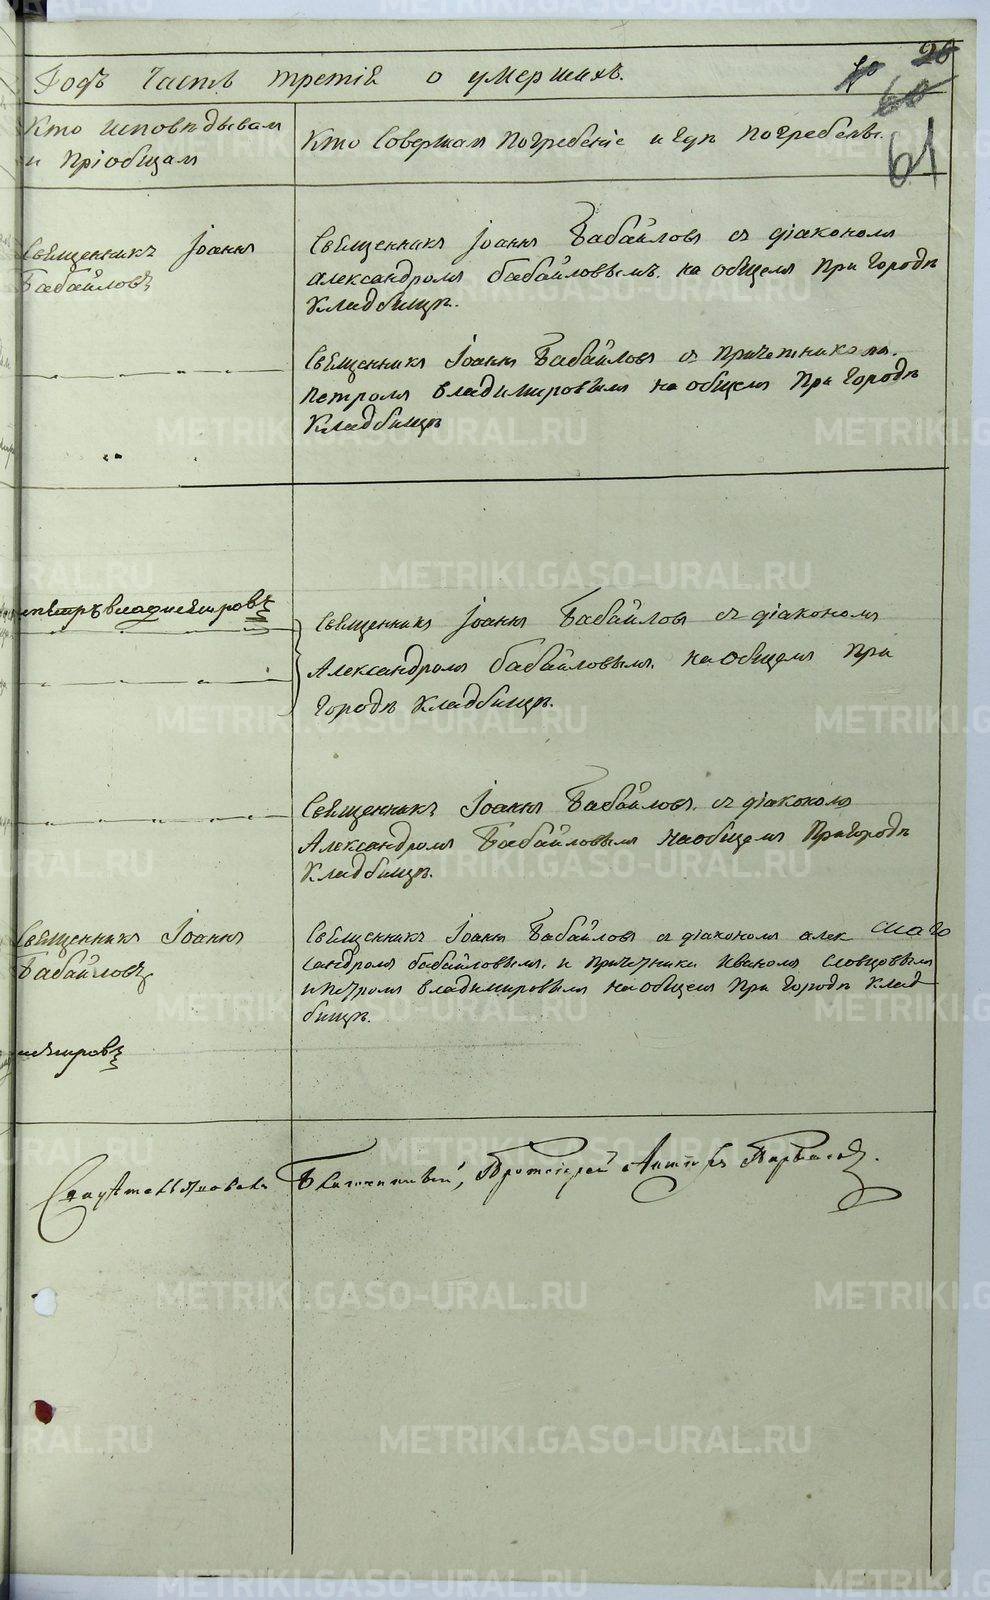 Годъ часть третіа о умершихъ.
26
60
61
Кто исповѣдывал
и пріобщал
Кто Совершал Погребеніе и гдѣ погребенъ.
Священникъ Іоаннъ
Бабайловъ
Священникъ Іоаннъ Бабайловъ съ діакономъ
александромъ бабайловымъ на общемъ При Городѣ
Кладбищѣ.
Священникъ Іоаннъ Бабайловъ съ причетникомъ
петромъ владимировымъ на общемъ При Городѣ
Кладбищѣ
петръ владимировъ
Священникъ Іоаннъ Бабайловъ съ діакономъ
Александромъ бабайловымъ на общемъ При
Городѣ Кладбищѣ.
Священникъ Іоаннъ Бабайловъ съ діакономъ
Александромъ Бабайловымъ на общемъ При городѣ
Кладбищѣ.
Священникъ Іоаннъ
Бабайловъ
Священникъ Іоаннъ Бабайловъ съ діакономъ алек
сандромъ бабайловымъ и причетники Иваномъ Словцовымъ
и петромъ владимировымъ на общемъ При Городѣ Клад
бищѣ.
Свидѣтельствовалъ Благочинный, Протоіерей
METRIKI.GASO-URAL.RU